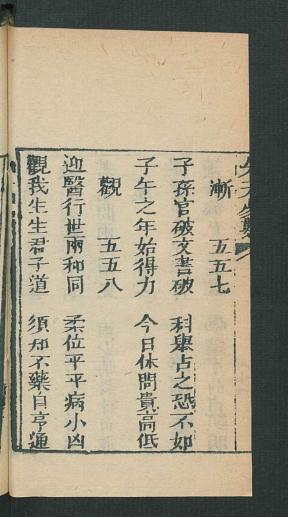 漸 五五七
子孫官破文書破 科舉占之恐不如
子午之年始得力 今日休問貴高低
觀 五五八
迎醫行世兩和同 柔位平平病小凶
觀我生生君子道 須知不藥自亨運